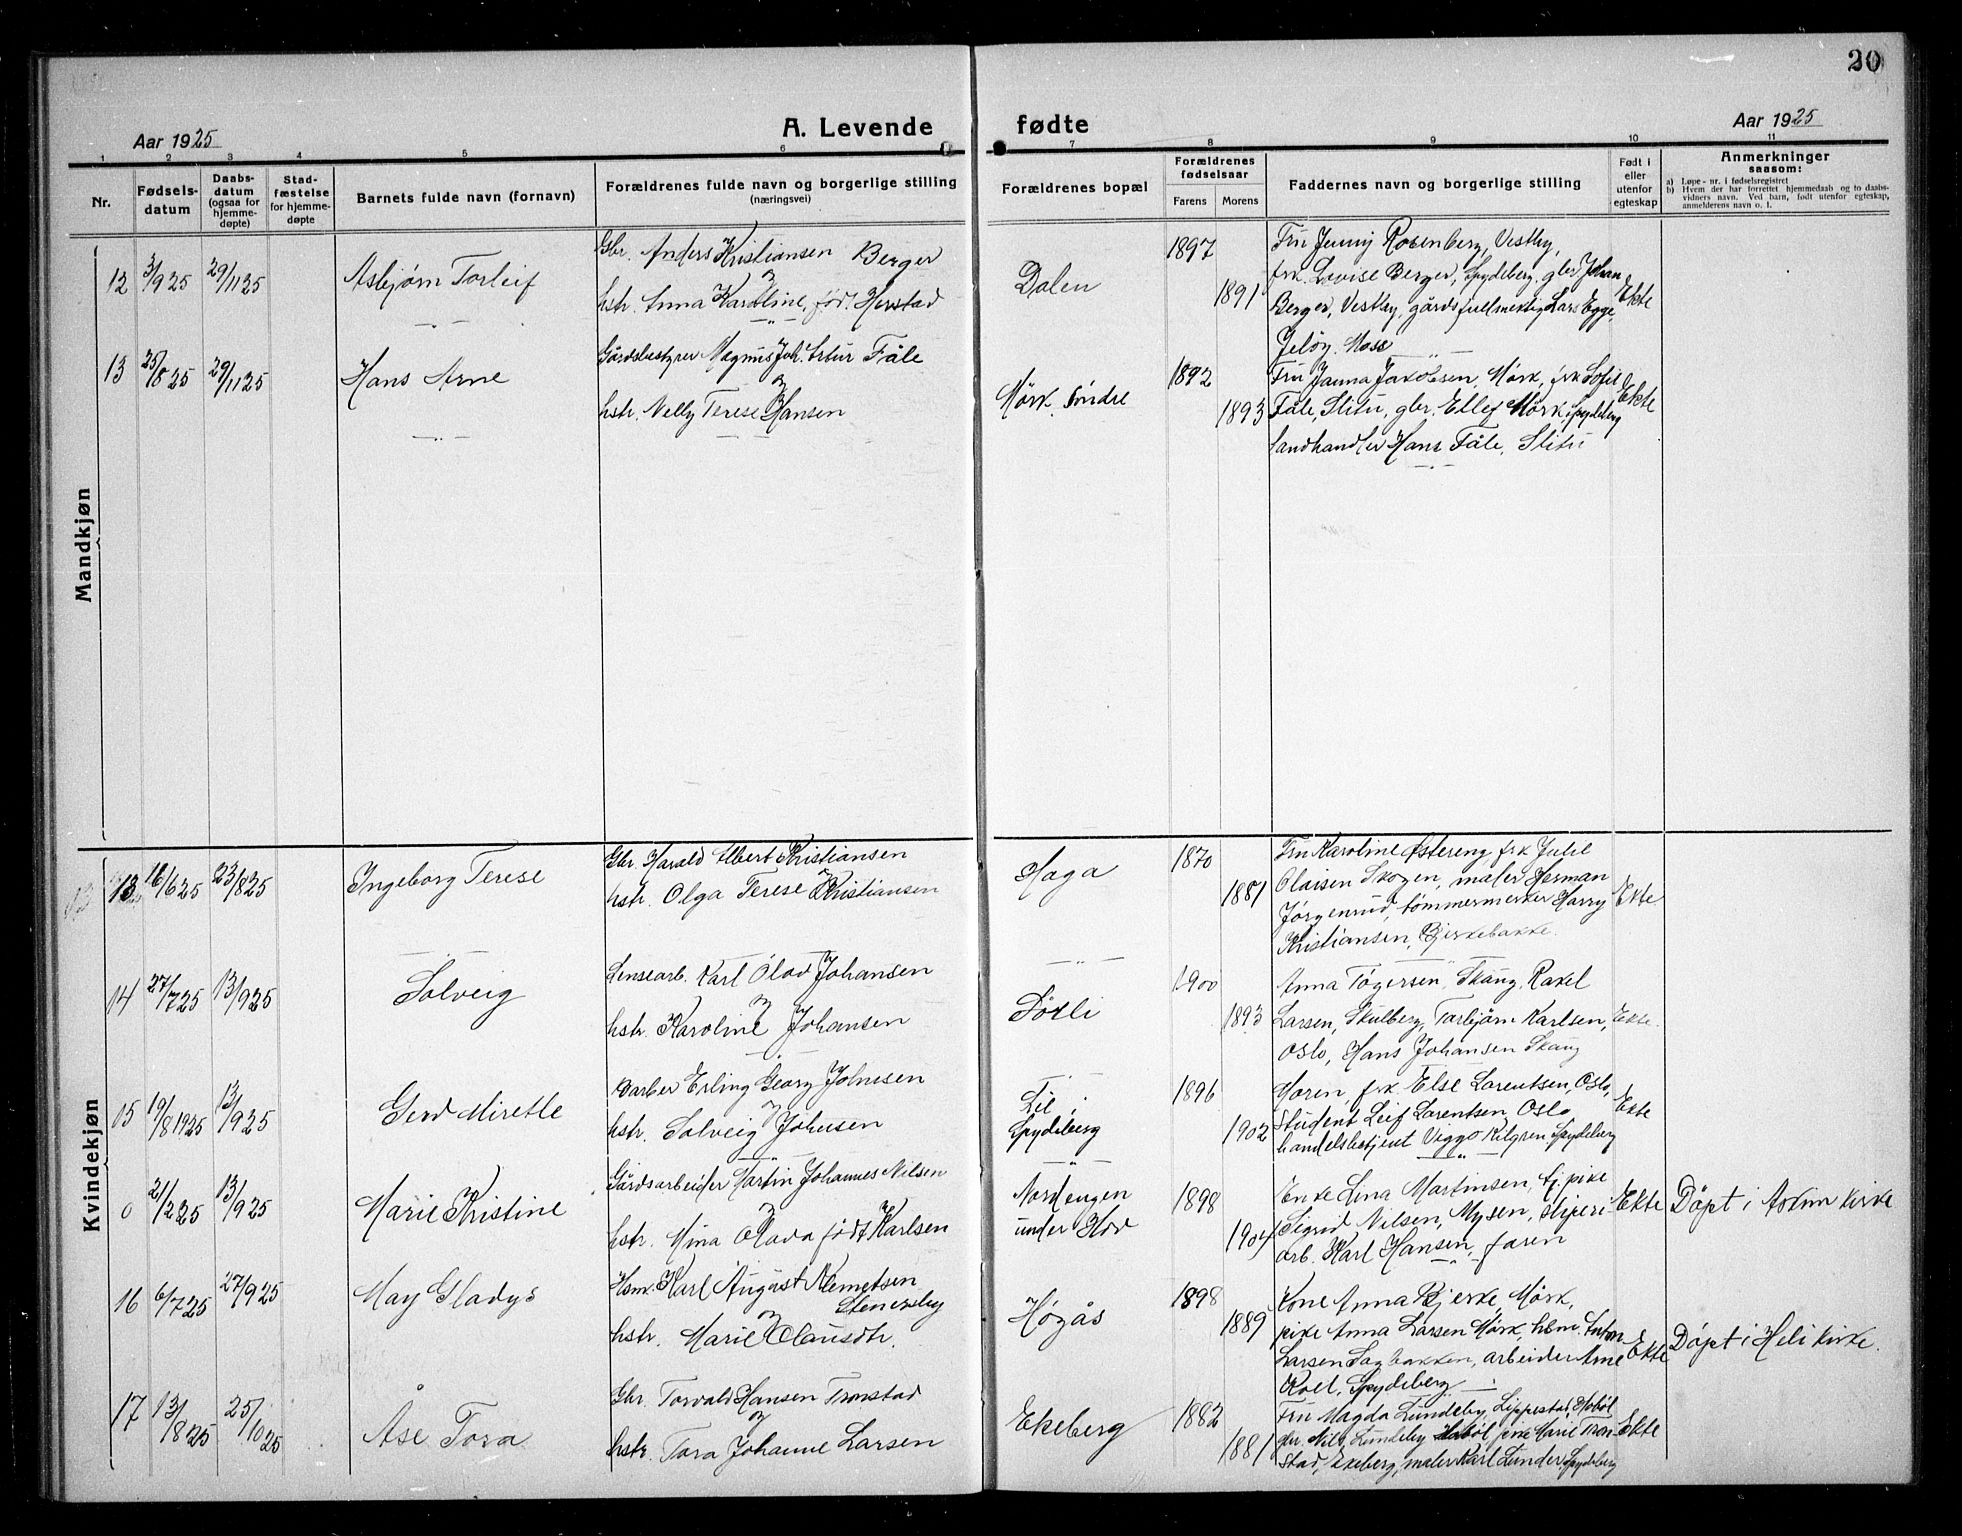 20
Aar 1925
A. Levende
fødte
Aar 1925
1 2 3 4 5 6 7 8 9 10 11
Nr.
Fødsels-
datum
Daabs-
datum
(ogsaa for
hjemme-
døpte)
Stad-
fæstelse
for hjemme-
døpte
Barnets fulde navn (fornavn)
Forældrenes fulde navn og borgerlige stilling
(næringsvei)
Forældrenes bopæl
Forældrenes
fødselsaar
Farens Morens
Faddernes navn og borgerlige stilling
Født i
eller
utenfor
egteskap
Anmerkninger
saasom:
a) Løpe-nr. i fødselsregistret
b) Hvem der har forrettet hjemmedaab og to daabs-
vidners navn. Ved barn, født utenfor egteskap,
anmelderens navn o. l.
Mandkjøn
12 3/9 25 29/11 25 Asbjørn Torleif
Gbr. Anders Kristiansen Berger
og
hstr. Anna Karoline, fød. Herstad
Dalen
1897
1891
Fru Jenny Rosenberg, Vestby,
frk. Lovise Berger, Spydeberg, gbr. Johan
Berger, Vestby, gårdsfullmektig Lars Egge,
Jeløy, Moss
Ekte
13 25/8 25 29/11 25 Hans Arne
Gårdsbestyrer Magnus Joh. Artur Fåle
og
hstr. Nelly Terese Hansen
Mørk, søndre
1892
1893
Fru Janna Jakobsen, Mørk, frk Sofie
Fåle, Slitu, gbr. Ellef Mørk, Spydeberg
landhandler Hans Fåle, Slitu
Ekte
Kvindekjøn
13 16/6 25 23/8 25 Ingeborg Terese
Gbr. Harald Albert Kristiansen
og
hstr. Olga Terese Kristiansen
Haga
1870
1881
Fru Karoline Østereng, frk Julie
Olaisen Skogen, maler Herman
Jørgenrud, tømmermerker Harry
Kristiansen, Bjerkebakke.
Ekte
14 27/7 25 13/9 25 Solveig
Lensearb. Karl Olav Johansen
og
hstr. Karoline Johansen
1900
1893
Anna Tøgersen, Skaug, Rakel
Larsen, Skulberg, Torbjørn Karlsen,
Oslo, Hans Johansen Skaug
Ekte.
15 19/8 1925 13/9 25 Gerd Mirette
Barber Erling Georg Johnsen
og
hstr. Solveig Johnsen
Li,
Spydeberg
1896
1902
Moren, frk. Else Lorentsen, Oslo,
Student Leif Lorentsen, Oslo
handelsbetjent Viggo Kilgren Spydeberg
Ekte
0 21/2 25 13/9 25 Marie Kristine
Gårdsarbeider Martin Johannes Nilsen
og
hstr. Mina Olava født Karlsen
Nordengen
under Hov
1898
1904
Enke Lina Martinsen, tj. pike
Sigrid Nilsen, Mysen, sliperi-
arb. Karl Hansen, faren
Ekte
Døpt i Askim kirke
16 6/7 25 27/9 25 May Gladys
Hsm. Karl August Klemetsen
Stenersby
og
hstr. Marie Clausdtr.
Høgås
1898
1889
Kone Anna Bjerke, Mørk,
pike Anna Larsen Mørk, hbm. Anton
Larsen Sagbakken, arbeider Arne
Roel, Spydeberg
Ekte
Døpt i Heli kirke.
17 13/8 25 25/10 25 Åse Tora
Gbr. Torvald Hansen Tronstad
og
hstr. Tora Johanne Larsen
Ekeberg
1882
1881
Fru Magda Lundeby, Lippestad, Hobøl
gbr. Nils Lundeby Hobøl, pike Marie Tron-
stad, Ekeberg, maler Karl Lunder Spydeberg
Ekte